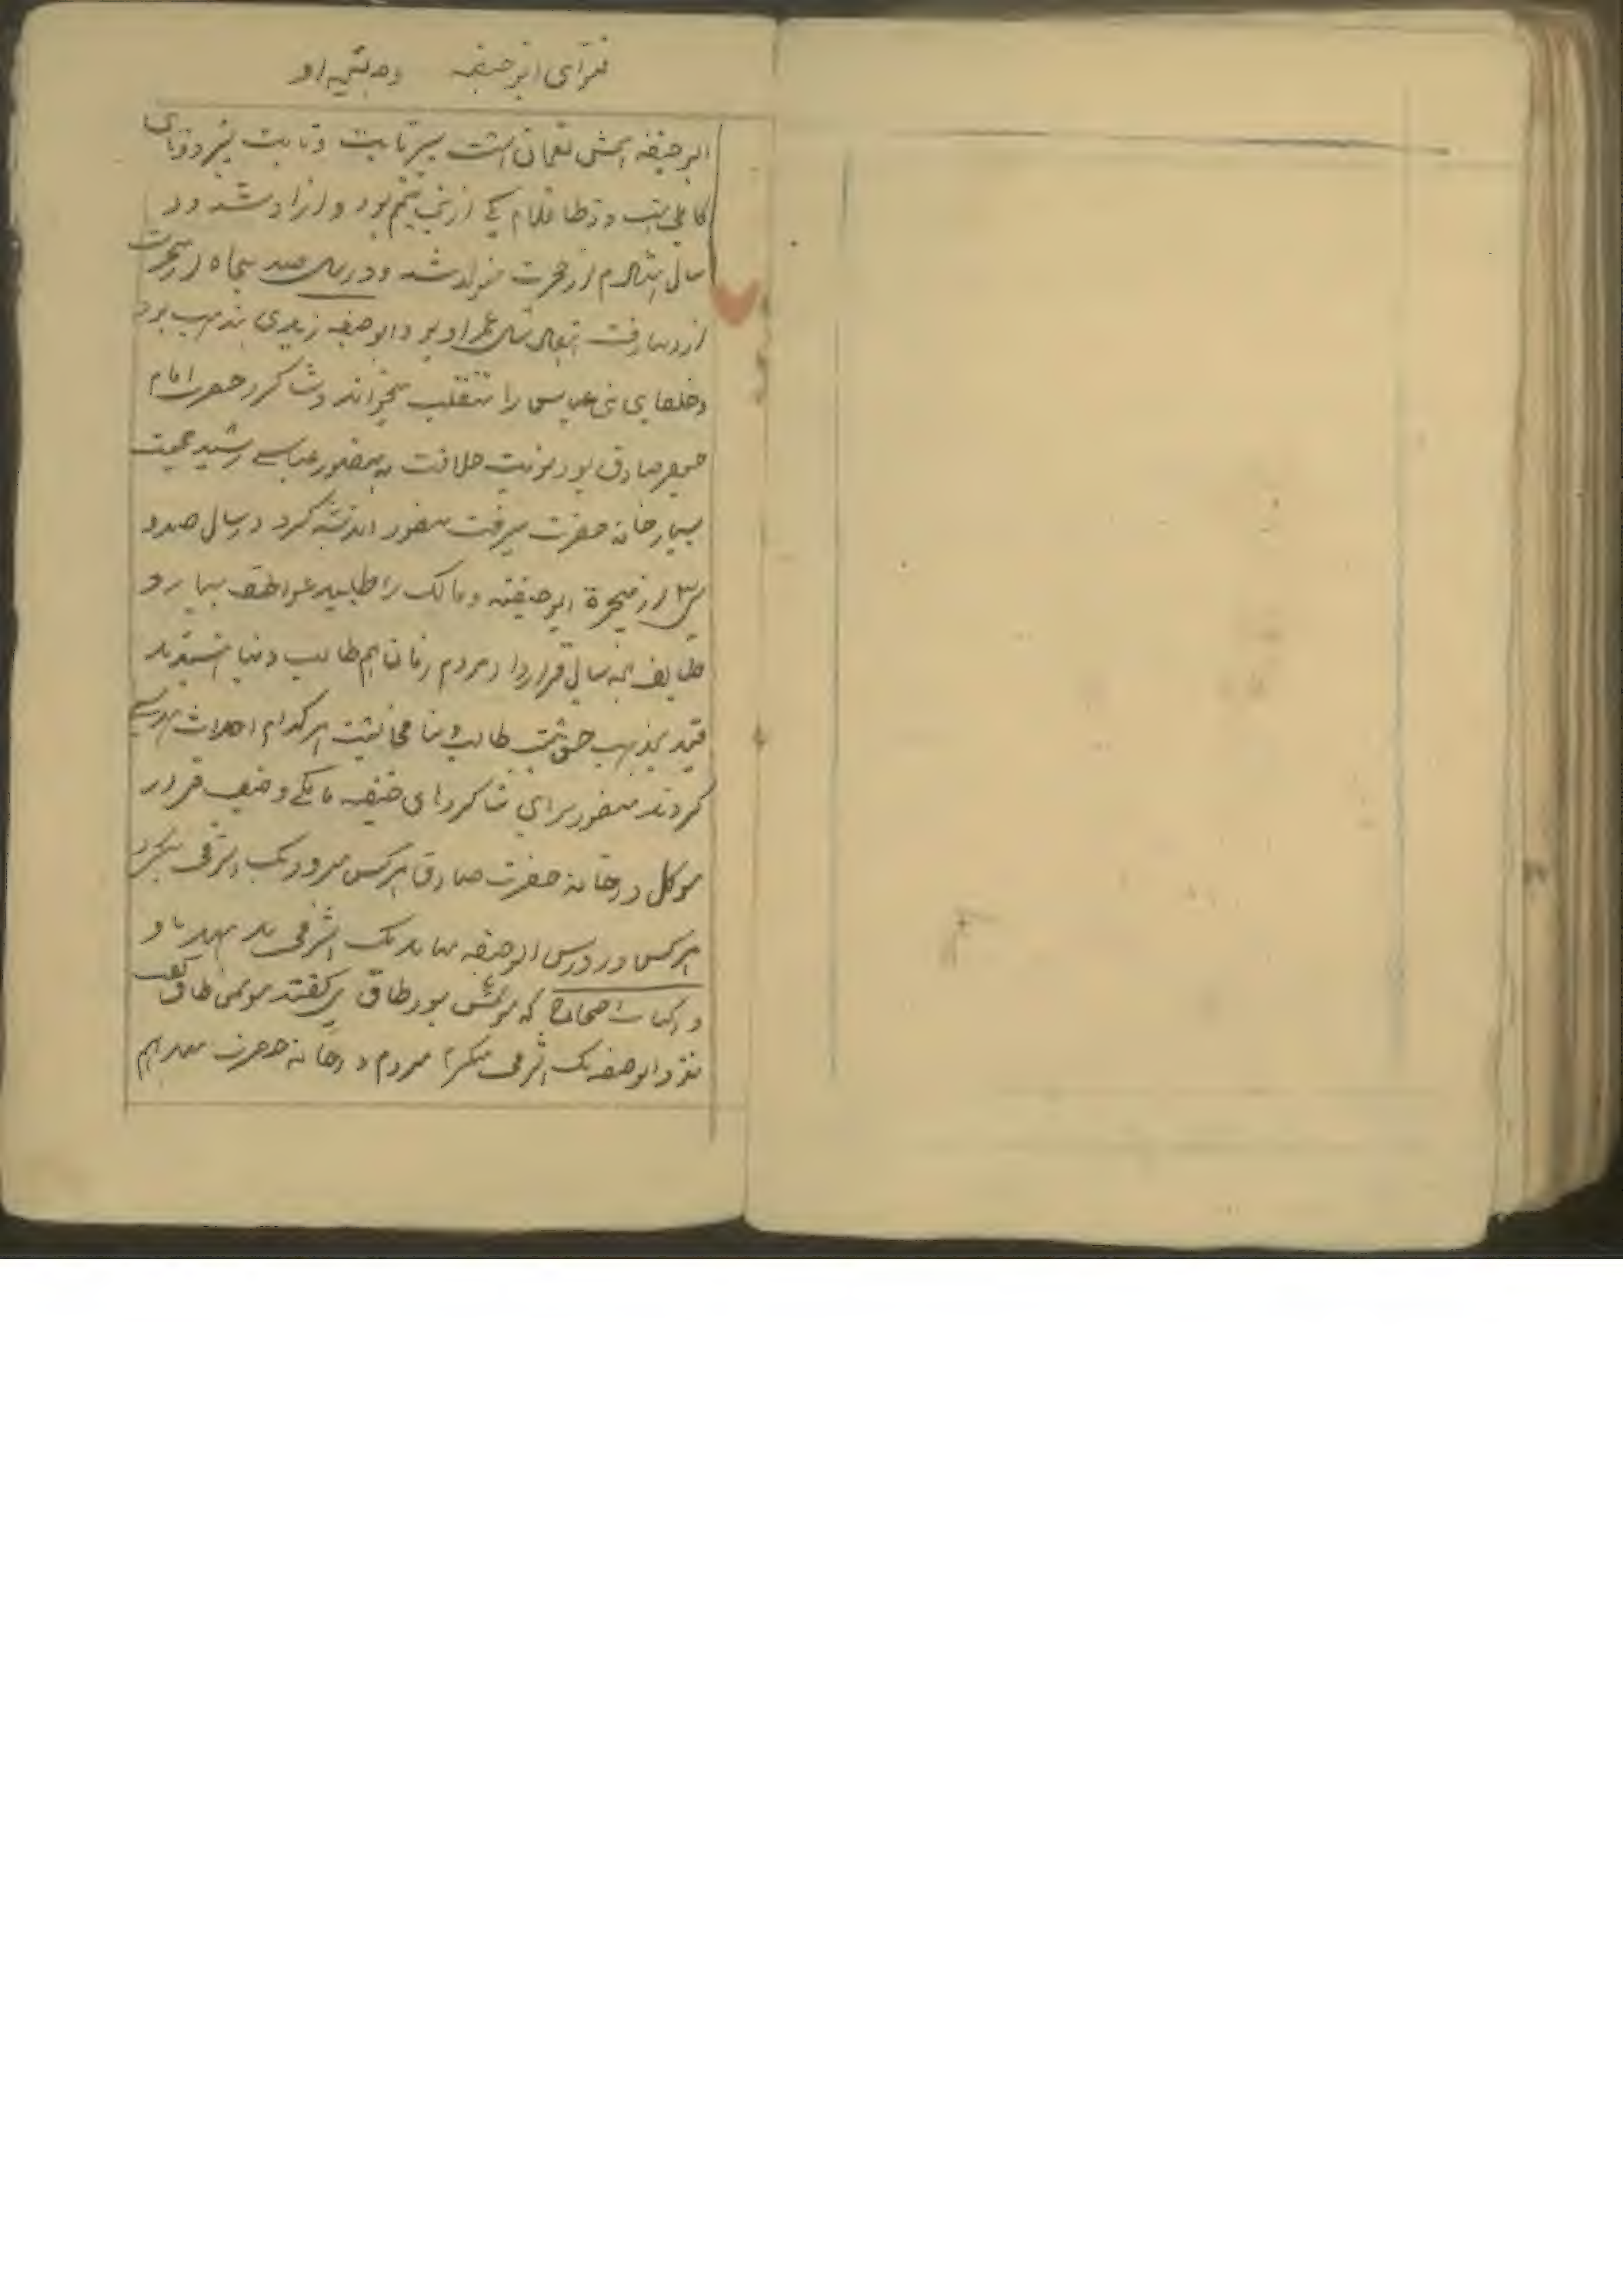 فتوای ابو حنیفه و بقیه او
ابو حنیفه اسمش نعمان است پسر ثابت و ثابت پسر زوطای
کابلی است و زوطا غلام یکی از بنی تیم بود و آزاد شد و در
سال هشتادم از هجرت متولد شد و در سال صد پنجاه از هجرت
از دنیا رفت هفتاد سال عمر او بود ابو حنیفه زیدی مذهب بود
و خلفای بنی عباس را متغلب میخواند و شاگرد حضرت امام
جعفر صادق بود نوبت خلافت به منصور عباسی رسید جمعیت
بسیار خانه حضرت میرفت منصور اندیشه کرد در سال صد و
سی ۳ از هجرة ابو حنیفه و مالک را طلبید عواطف بسیار و
وظایف همه ساله قرار داد مردم زمان هم طالب دنیا هستند
قید مذهب حق نیست طالب دنیا هر کدام احداث مذهبی
کردند منصور برای شاگردهای حنیفه مالکی وظیفه قرار داد
موکل در خانه حضرت صادق هر کس میرود یک اشرفی بگیرد
هر کس در درس ابو حنیفه بیاید یک اشرفی بدهد باو
که مومنش بود طاق می گفتند مومن طاق گفت
نزد ابو حنیفه یک اشرفی میگیرم میروم در خانه حضرت میدهم